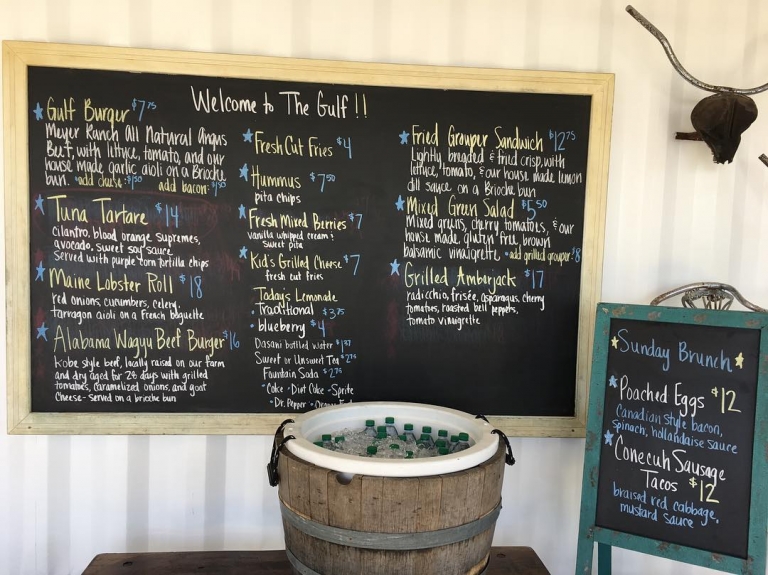 Welcome to The Gulf!!
Gulf Burger $7.75
Meyer Ranch All Natural Angus
Beef, with lettuce, tomato, and our
house made garlic aioli on a Brioche
bun. •add cheese $1.50 add bacon: $1.50
Tuna Tartare $14
cilantro, blood orange supremes,
avocado, sweet soy sauce
served with purple corn tortilla chips
Maine Lobster Roll $18
red onions, cucumbers, celery,
tarragon aioli on a French baguette
Alabama Wagyu Beef Burger $16
Kobe style beef, locally raised on our farm
and dry aged for 28 days with grilled
tomatoes, caramelized onions, and goat
cheese - served on a brioche bun
Fresh Cut Fries $4
Hummus $7.50
pita chips
Fresh Mixed Berries $7
vanilla whipped cream &
sweet pita
Kid's Grilled Cheese $7
fresh cut fries
Today's Lemonade
• Traditional $3.75
• blueberry $4
Dasani bottled water
Sweet or Unsweet Tea $2.75
Fountain Soda $2.75
• Coke • Diet Coke • Sprite
• Dr. Pepper •
Fried Grouper Sandwich $12.75
Lightly breaded & fried crisp, with
lettuce, tomato, & our house made lemon
dill sauce on a Brioche bun
Mixed Green Salad $5.50
Mixed greens, cherry tomatoes, & our
house made gluten free brown
balsamic vinaigrette • add grilled grouper $8
Grilled Amberjack $17
radicchio, frisée, asparagus, cherry
tomatoes, roasted bell peppers,
tomato vinaigrette
Sunday Brunch
Poached Eggs $12
Canadian style bacon,
spinach, hollandaise sauce
Conecuh Sausage
Tacos $12
braised red cabbage,
mustard sauce